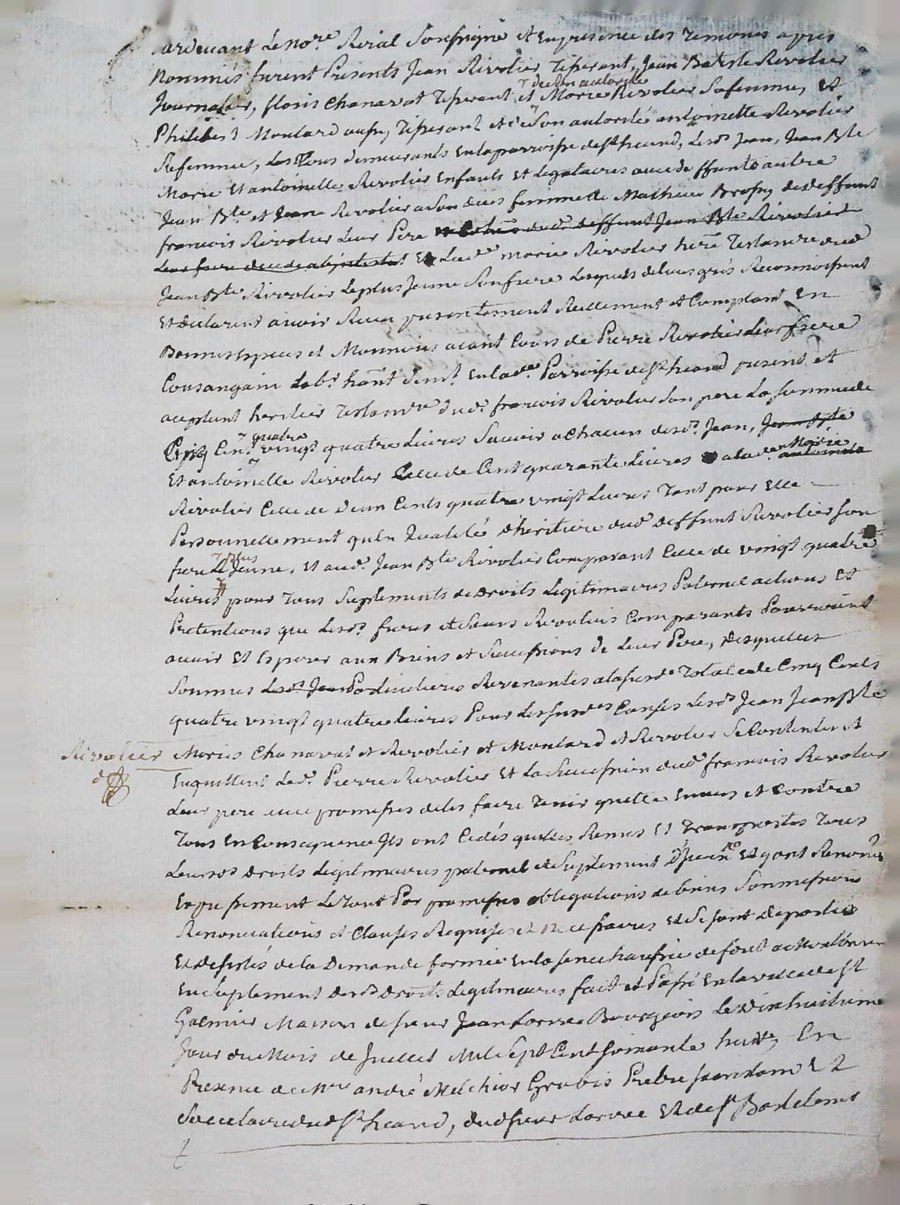 Pardevant Le Nore Roial Soussigné et En presence des Temoins apres
Nommés furent Presents Jean Rivolier Tisserant, Jean Bapte Revolier
Journalier, floris Chanavat Tisserant et de son autorité Marie Revolier Sa femme, Et
Philibert Montard aussy Tisserant et de Son autorité antoinette Revolier
Sa femme, Les Tous demeurants En la parroisse de St heand, Lesd. Jean, Jean Bte
Marie Et antoinette Revolier Enfants Et legataires avec deffunt autre
Jean Bte et Jeane Revolier a Son deces femme de Mathieu Brossy de deffunt
francois Revolier Leur Pere et dud. deffunt Jean Bte Revolier
Leur frere decedé abintestat Et Lade marie Revolier herre Testamre dud.
Jean Bte Revolier Le plus Jeune Son frere Lesquels de leurs grés Reconnoissent
Et declarent avoir Receu presentement Reellement et Comptant En
Bonnes Especes et Monnoies aiant Cours de Pierre Revolier Leur frere
Consanguin Labr. hant demt. En lade Parroisse de St heand present et
acceptant heritier Testamre dud. francois Revolier Son pere La Somme de
Cinq Cent quatre vingt quatre Livres Scavoir a Chacun desd. Jean, Jean Bte
Et antoinette Revolier Celle de Cent quarante Livres a lade Marie antoinette
Revolier Celle de Deux Cents quatre vingt Livres Tant pour Elle
Personnellement qu'En qualité d'heritiere dud. deffunt Revolier son
frere le plus Jeune, Et aud. Jean Bte Revolier Comparant Celle de vingt quatre
Livres pour Tous Suplements de Droits Legitimaires Paternel actions Et
Pretentions que Lesd. freres et Soeurs Revoliers Comparants Pourroient
avoir Et Esperer aux Biens et Successions de Leur Pere, Desquelles
Sommes Particulieres Revenantes a la susde Totalle de Cinq Cents
quatre vingt quatre Livres Pour Les susdes Causes Lesd. Jean Jean Bte
Revolier Maries Chanavat et Revolier et Montard et Revolier Se Contentent Et
En quittent Led. Pierre Revolier Et La Succession dud. francois Revolier
Leur pere avec promesses de les faire Tenir quitte Envers et Contre
Tous En Consequence Ils ont Cedés quittés Remis Et Transportés Tous
Leursd. Droits Legitimaires paternel et Suplement d'Iceux Et y ont Renoncé
Expressement Le Tout Par promesses obligations de biens Soumissions
Renonciations et Clauses Requises et Necessaires Et Se Sont Departis
Et desistés de la Demande formée En la Senechaussée de foret a Montbrison
En Suplement desd. Droits Legitimaires fait et Passé En la ville de St
Galmier Maison de sieur Jean Bourgeois Le Dixhuitieme
Jour du Mois de Juillet Mil Sept Cent Soixante huit, En
Presence de Mre andré Melchior Grubis Pretre
Secretaire dud. St heand, dud. sieur Et de Sr Bartelemi